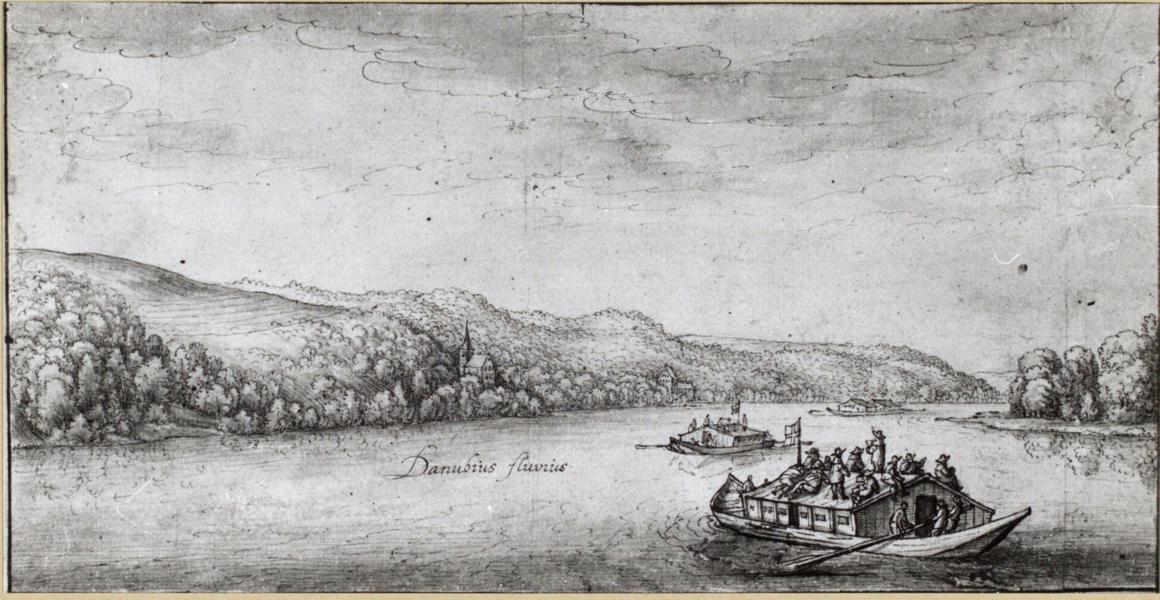 Danubius fluvius